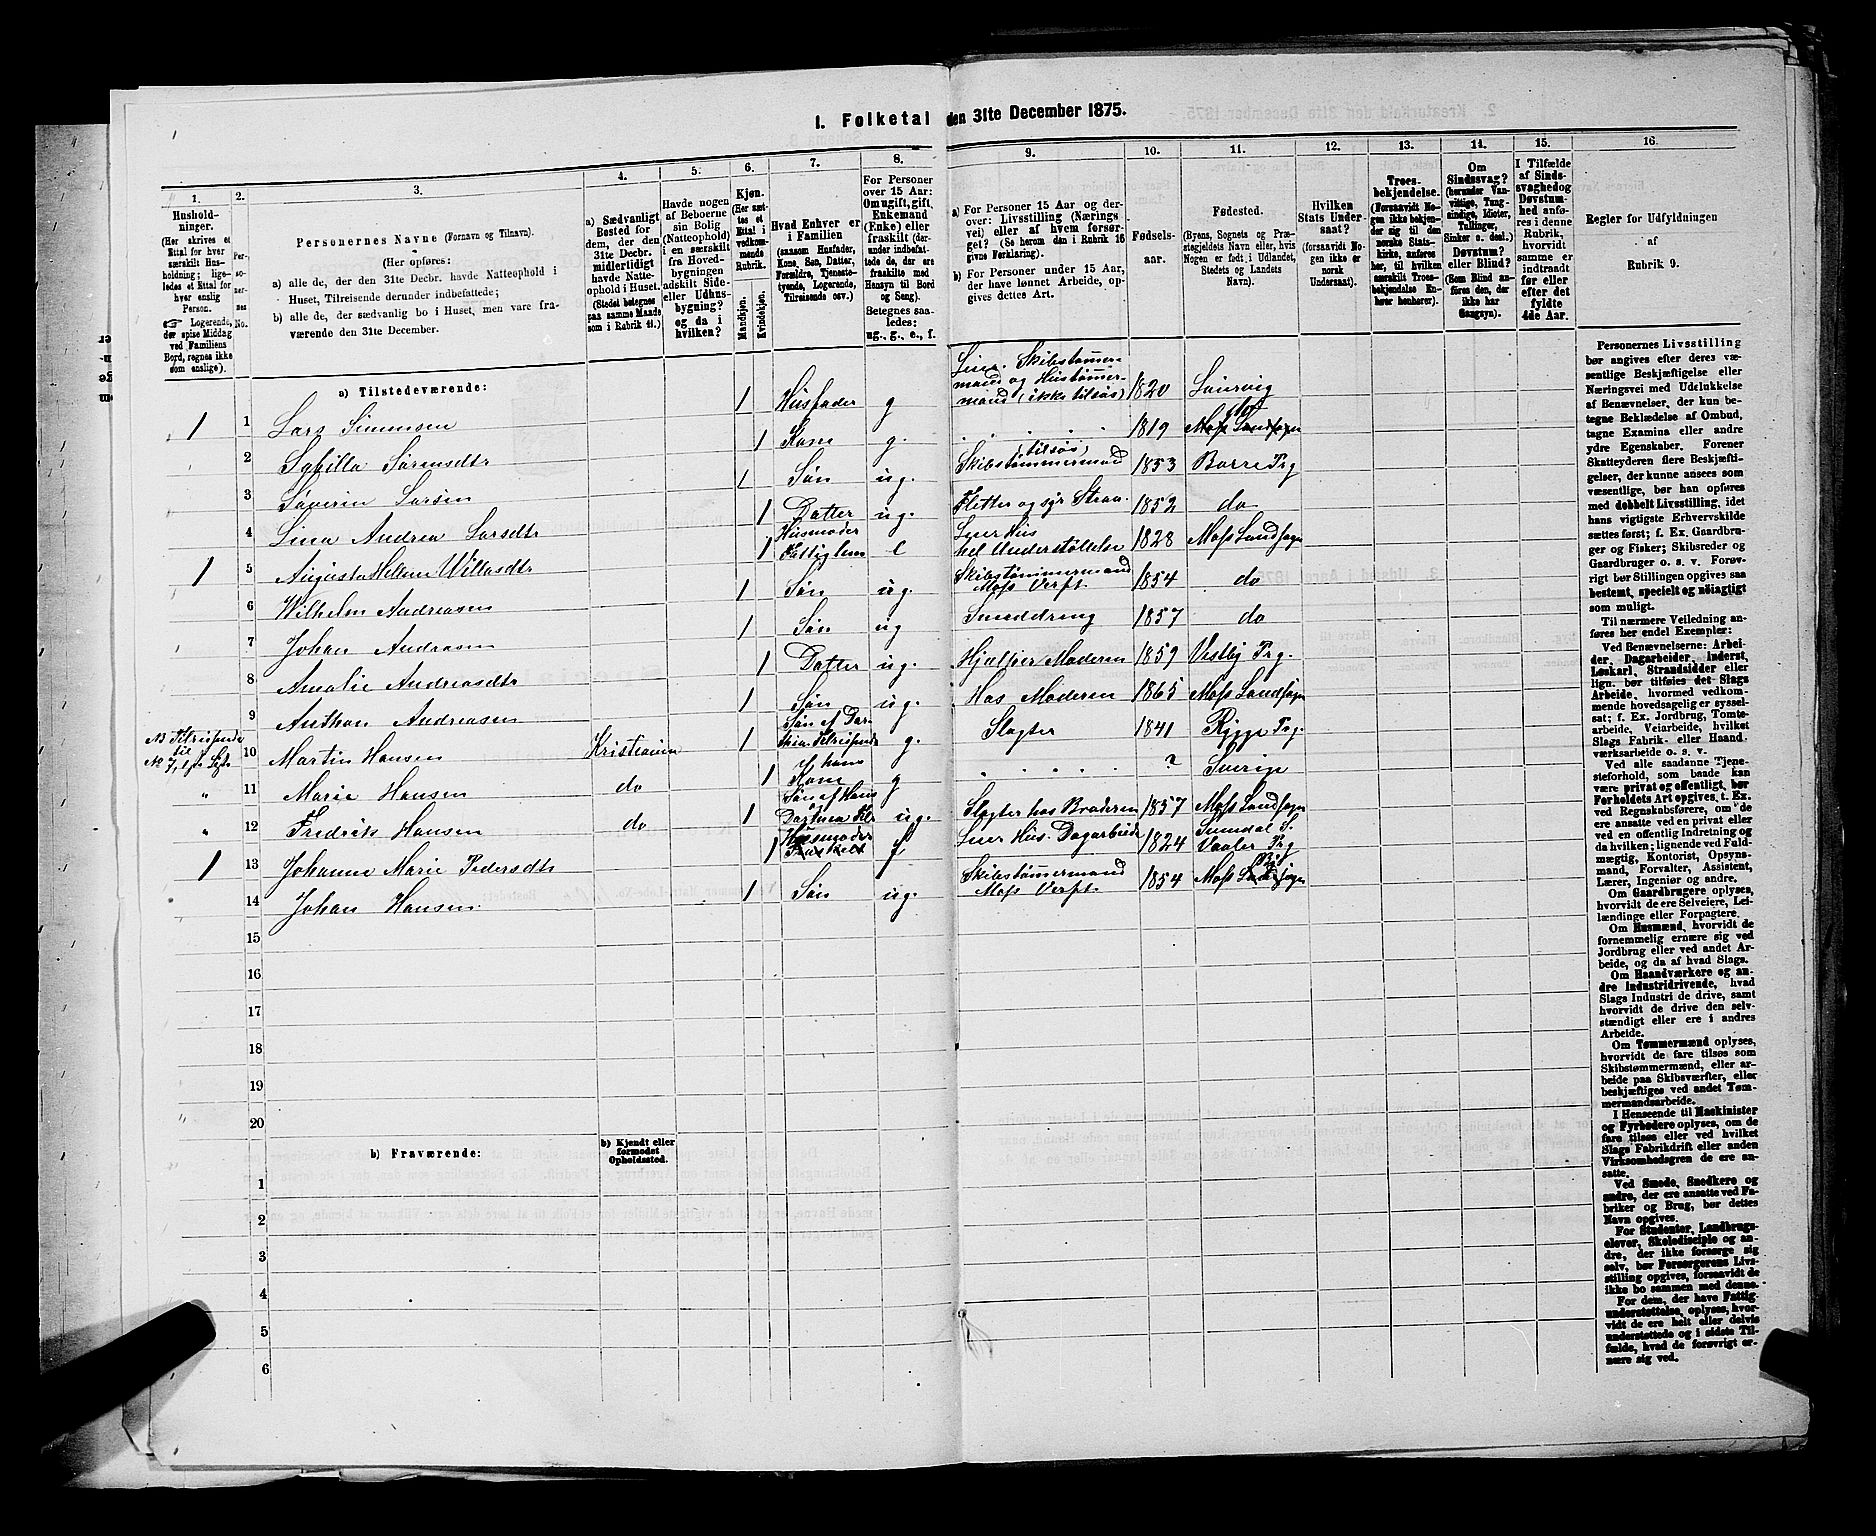 I. Folketal den 31te December 1875.
1.
Hushold-
ninger.
(Her skrives et
Ettal for hver
særskilt Hus-
holdning; lige-
ledes et Ettal for
hver enslig
Person.
☞ Logerende,
der spise Middag
ved Familiens
Bord, regnes ikke
som enslige).
2.
Per-
so-
ner-
nes
No.
3.
Personernes Navne (Fornavn og Tilnavn).
(Her opføres:
a) alle de, der den 31te Decbr. havde Natteophold i
Huset, Tilreisende derunder indbefattede;
b) alle de, der sædvanlig bo i Huset, men vare fra-
værende den 31te December.
4.
a) Sædvanligt
Bosted for
dem, der den
31te Decbr.
midlertidigt
havde Natte-
ophold i Huset.
(Stedet betegnes
paa samme Maade
som i Rubrik 11.)
5.
Havde nogen
af Beboerne
sin Bolig
(Natteophold)
i en særskilt
fra Hoved-
bygningen
adskilt Side-
eller Udhus-
bygning?
og da i
hvilken?
6.
Kjøn.
(Her sæt-
tes et
Ettal i
vedkom-
mende
Rubrik.
Mandkjøn.
Kvindekjøn.
7.
Hvad Enhver er
i Familien
(saasom Husfader,
Kone, Søn, Datter,
Forældre, Tjeneste-
tyende, Logerende,
Tilreisende osv.)
8.
For Personer
over 15 Aar:
Om ugift, gift,
Enkemand
(Enke) eller
fraskilt (der-
under indbefat-
tede de, der ere
fraskilte med
Hensyn til Bord
og Seng).
Betegnes saa-
ledes:
ug., g., e., f.
9.
a) For Personer 15 Aar og der-
over: Livsstilling (Nærings
vei) eller af hvem forsør-
get? (Se herom den i Rubrik 16
givne Forklaring).
b) For Personer under 15 Aar,
der have lønnet Arbeide, op-
gives dettes Art.
10.
Fødsels-
aar.
11.
Fødested.
(Byens, Sognets og Præ-
stegjeldets Navn eller, hvis
Nogen er født i Udlandet,
Stedets og Landets
Navn).
12.
Hvilken
Stats Under-
saat?
(forsaavidt No-
gen ikke er
norsk
Undersaat).
13.
Troes-
bekjendelse.
(Forsaavidt No-
gen ikke bekjen-
der sig til den
norske Stats-
kirke, anføres
her, til hvilken
særskilt Troes-
bekjendelse En-
hver henhører).
14.
Om
Sindssvag?
(herunder Van-
vittige, Tung-
sindige, Idioter,
Tullinger,
Sinker o. desl.)
Døvstum?
eller Blind?
(Som Blind an-
føres den, der
ikke har
Gangsyn).
15.
I Tilfælde
af Sinds-
svaghed og
Døvstum-
hed anfø-
res i denne
Rubrik,
hvorvidt
samme er
indtraadt
før eller
efter det
fyldte
4de Aar.
16.
Regler for Udfyldningen
af
Rubrik 9.
a) Tilstedeværende:
1 1 Lars Simensen 1 Husfader g Leier. Skibstømmer-
mand og Hustømmer-
mand (ikke tilsøs) 1820 Laurvig
2 Sybilla Sørensdtr 1 Kone g. 1819 Moss Landsogn
3 Søverin Larsen 1 Søn ug. Skibstømmermand (tilsøs) 1853 Borre Prg
4 Lina Andrea Larsdtr 1 Datter ug. Fletter og syr Straa. 1852 do
1 5 Augusta Helene Willasdtr 1 Husmoder
Fattiglem e Leier Hus
hel Understøttelse 1828 Moss Landsogn
6 Wilhelm Andreasen 1 Søn ug. Skibstømmermand
Moss Verft 1854 do
7 Johan Andreasen 1 Søn ug Smeddreng 1857 do
8 Amalie Andreasdtr 1 Datter ug. Hjælper Moderen 1859 Vestby Prg.
9 Anthon Andreasen 1 Søn ug. Hos Moderen 1865 Moss Landsogn
10 Martin Hansen Kristiania 1 g. Slagter 1841 Rygge Prg.
" 11 Marie Hansen do 1 Kone g ? Sverige
" 12 Fredrik Hansen do 1 ug. Slagter hos Broderen 1857 Moss Landsogn
1 13 Johanne Marie Pedersdtr 1 Husmoder
Fraskilt f Leier Hus. Dagarbeide 1824 Vaaler Prg
14 Johan Hansen 1 Søn ug. Skibstømmermand
Moss Verft 1854 Moss By
15
16
17
18
19
20
b) Fraværende:
b) Kjendt eller
formodet
Opholdssted.
1
2
3
4
5
6
Personernes Livsstilling
bør angives efter deres væ-
sentlige Beskjæftigelse eller
Næringsvei med Udelukkelse
af Benævnelser, der kun be-
tegne Beklædelse af Ombud,
tagne Examina eller andre
ydre Egenskaber. Forener
Skatteyderen flere Beskjæfti-
gelser, der kunne ansees som
væsentlige, bør han opføres
med dobbelt Livsstilling, idet
hans vigtigste Erhvervskilde
sættes først; f. Ex. Gaardbru-
ger og Fisker; Skibsreder og
Gaardbruger o. s. v. Forøv-
rigt bør Stillingen opgives saa
bestemt, specielt og nøiagtigt
som muligt.
Til nærmere Veiledning an-
føres her endel Exempler:
Ved Benævnelserne: Arbei-
der, Dagarbeider, Inderst,
Løskarl, Strandsidder eller
lign. bør tilføies det Slags
Arbeide, hvormed vedkom-
mende hovedsagelig er syssel-
sat; f. Ex. Jordbrug, Tomte-
arbeide, Veiarbeide, hvilket
Slags Fabrik- eller Haand-
værksarbeide o. s. v.
Ved alle saadanne Tjene-
steforhold, som baade kan
være privat og offentligt, bør
Forholdets Art opgives, t. Ex.
ved Regnskabsførere, om de
ere ansatte ved en privat eller
ved en offentlig Indretning og
da hvilken; lignende ved Fuld-
mægtig, Kontorist, Opsyns-
mand, Forvalter, Assistent,
Lærer, Ingeniør og andre.
Om Gaardbrugere oplyses,
hvorvidt de ere Selveiere, Lei-
lændinge eller Forpagtere.
Om Husmænd, hvorvidt de
fornemmelig ernære sig ved
Jordbrug eller ved andet Ar-
beide, og da af hvad Slags.
Om Haandværkere og an-
dre Industridrivende, hvad
Slags Industri de drive, samt
hvorvidt de drive den selv-
stændigt eller ere i andres
Arbeide.
Om Tømmermænd oplyses,
hvorvidt de fare tilsøs som
Skibstømmermænd, eller ar-
beide paa Skibsværfter, eller
beskjæftiges ved andet Tøm-
mermandsarbeide.
I Henseende til Maskinister
og Fyrbødere oplyses, om de
fare tilsøs eller ved hvilket
Slags Fabrikdrift eller anden
Virksomhedsgren de ere an-
satte.
Ved Smede, Snedkere og
andre, der ere ansatte ved Fa-
briker og Brug, bør dettes
Navn opgives.
For Studenter, Landbrugs-
elever, Skoledisciple og an-
dre, der ikke forsørge sig
selv, bør Forsørgerens Livs-
stilling opgives, forsaavidt de
ikke bo sammen med denne.
For dem, der have Fattig-
understøttelse, oplyses, hvor-
vidt de ere helt eller delvis
understøttede og i sidste Til-
fælde, hvad de forøvrigt er-
nære sig ved.